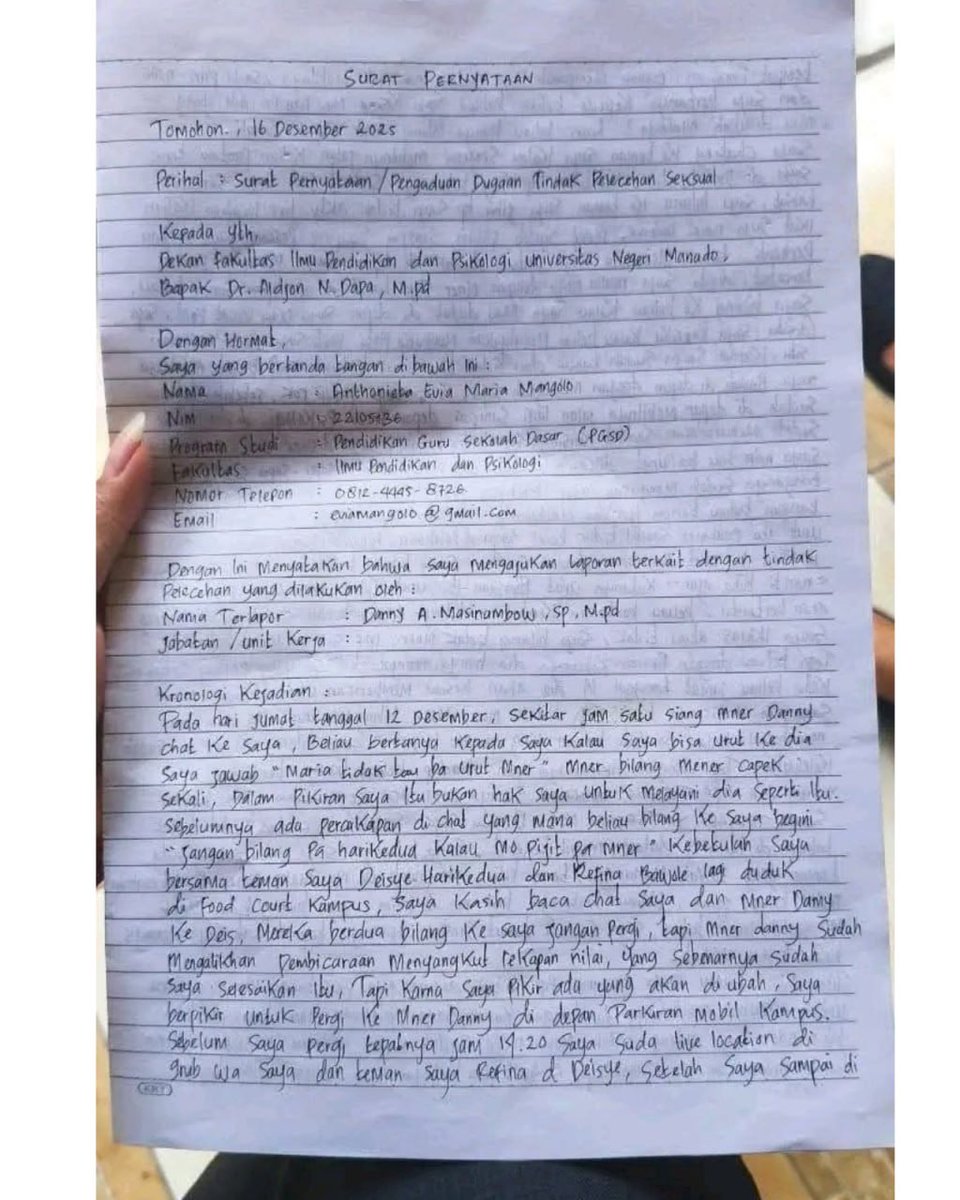 SURAT PERNYATAAN
Tomohon., 16 Desember 2025
Perihal : Surat Pernyataan / Pengaduan Dugaan Tindak Pelecehan Seksual
Kepada Yth,
Dekan Fakultas Ilmu Pendidikan dan Psikologi Universitas Negeri Manado,
Bapak Dr. Aldjon N. Dapa, M.pd
Dengan Hormat,
Saya yang bertanda tangan dibawah ini :
Nama : Anthonieta Evia Maria Mangolo
Nim : 22105136
Program Studi : Pendidikan Guru Sekolah Dasar (PGSD)
Fakultas : Ilmu Pendidikan dan Psikologi
Nomor Telepon : 0812-4445-8726
Email : eviamangolo@gmail.com
Dengan Ini Menyatakan bahwa saya mengajukan laporan terkait dengan tindak
Pelecehan yang dilakukan oleh :
Nama Terlapor : Danny A. Masinambow, Sp, M.pd
Jabatan / unit Kerja :
Kronologi Kejadian :
Pada hari jumat tanggal 12 Desember, sekitar jam satu siang mner Danny
chat Ke saya, Beliau bertanya Kepada Saya Kalau Saya bisa urut Ke dia
Saya jawab "Maria tidak tau ba urut Mner" Mner bilang mener capek
sekali, Dalam Pikiran Saya Itu bukan hak saya untuk melayani dia seperti Itu.
Sebelumnya ada percakapan di chat yang mana beliau bilang Ke saya begini
"Jangan bilang Pa hariKedua Kalau mo pijit pa mner" Kebetulah Saya
bersama teman Saya Deisye HariKedua dan Refina Bawole lagi duduk
di Food Court Kampus, Saya Kasih baca chat Saya dan Mner Danny
Ke Deis, Mereka berdua bilang Ke saya Jangan Pergi, tapi Mner danny Sudah
Mengalihkan Pembicaraan Menyangkut rekapan nilai, yang Sebenarnya Sudah
Saya Selesaikan Itu, Tapi Karna Saya Pikir ada yang akan di ubah, Saya
berpikir untuk Pergi Ke Mner Danny di depan Parkiran Mobil Kampus.
Sebelum Saya pergi tepatnya jam 14.20 Saya Suda live location di
grub wa Saya dan teman saya Refina d Deisye, Setelah Saya Sampai di